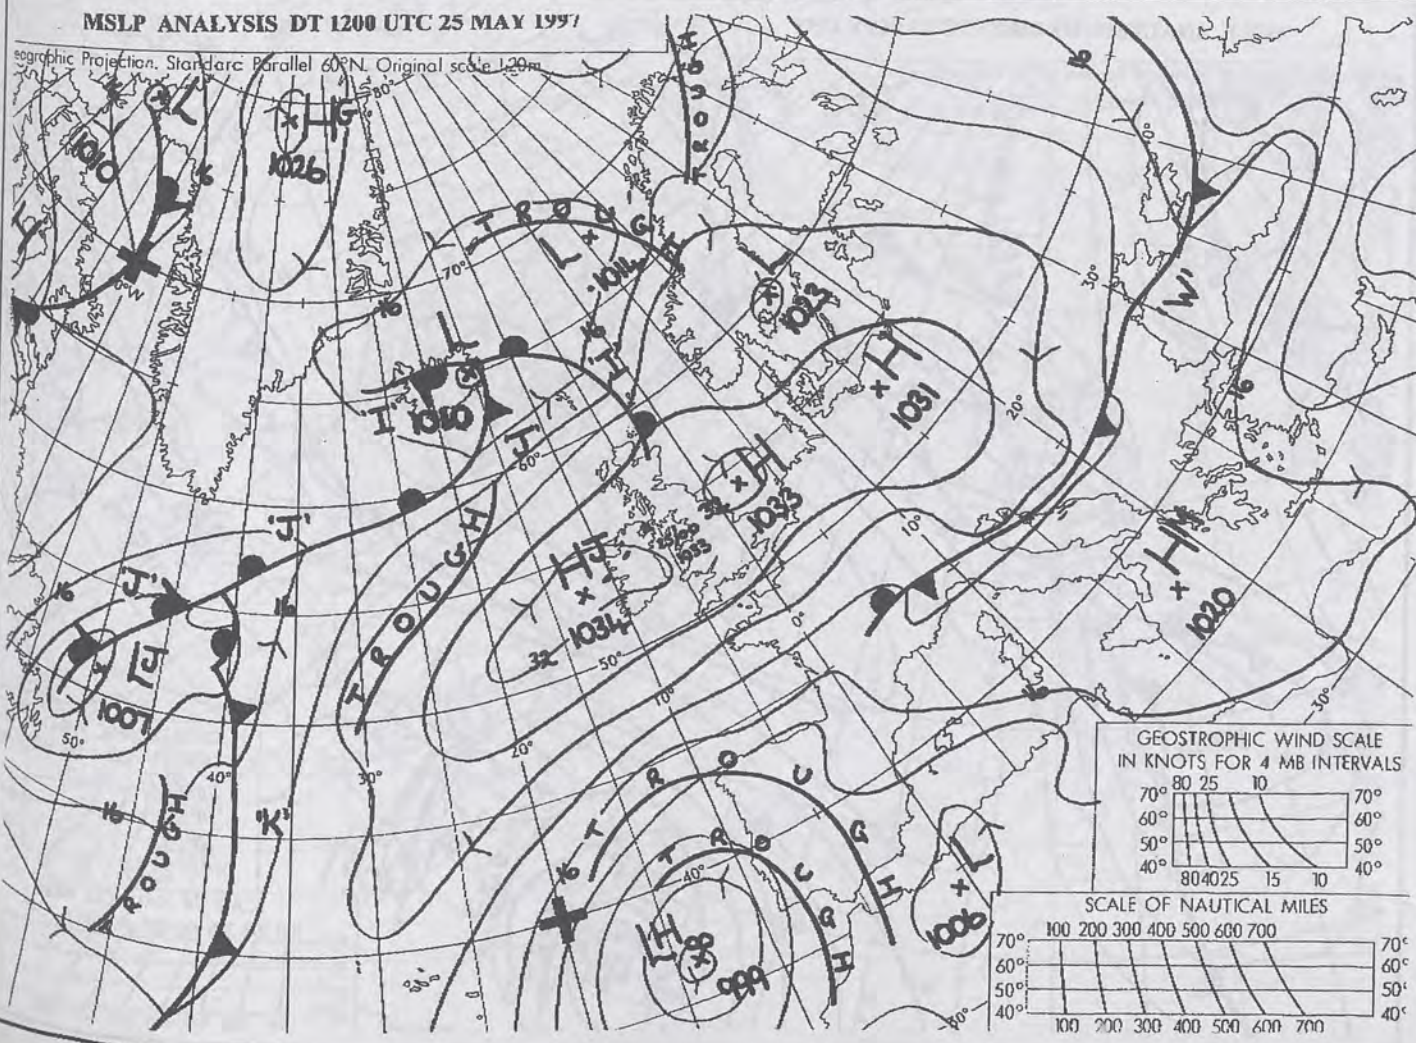 MSLP ANALYSIS DT 1200 UTC 25 MAY 1997
eographic Projection. Standard Parallel 60°N. Original scale 1:20m
80°
L
1010
16
HG
1026
TROUGH
16
TROUGH
L
1014
70°
16
16
L
1023
H
1031
30°
20°
'W'
16
L
'I'
1010
H
J
60°
H
1033
32
10°
0°
'J'
J'
16
16
TROUGH
HJ
1034
32
50°
10°
20°
30°
40°
50°
1007
'K'
16
TROUGH
H
1020
16
30°
TROUGH
16
TROUGH
40°
LH
998
999
L
1006
GEOSTROPHIC WIND SCALE
IN KNOTS FOR 4 MB INTERVALS
80 25 10
70° 70°
60° 60°
50° 50°
40° 40°
80 40 25 15 10
SCALE OF NAUTICAL MILES
100 200 300 400 500 600 700
70° 70°
60° 60°
50° 50°
40° 40°
100 200 300 400 500 600 700